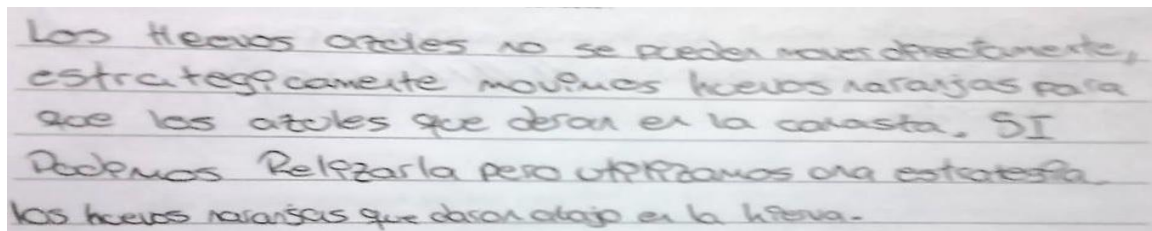 Los Heevos azules no se pueden mover directamente,
estrategicamente movimos huevos naranjas para
que los azules que deran en la canasta. SI
Podemos Relizarla pero utilizamos una estrategia
los huevos naranjas que daran abajo en la hierva.